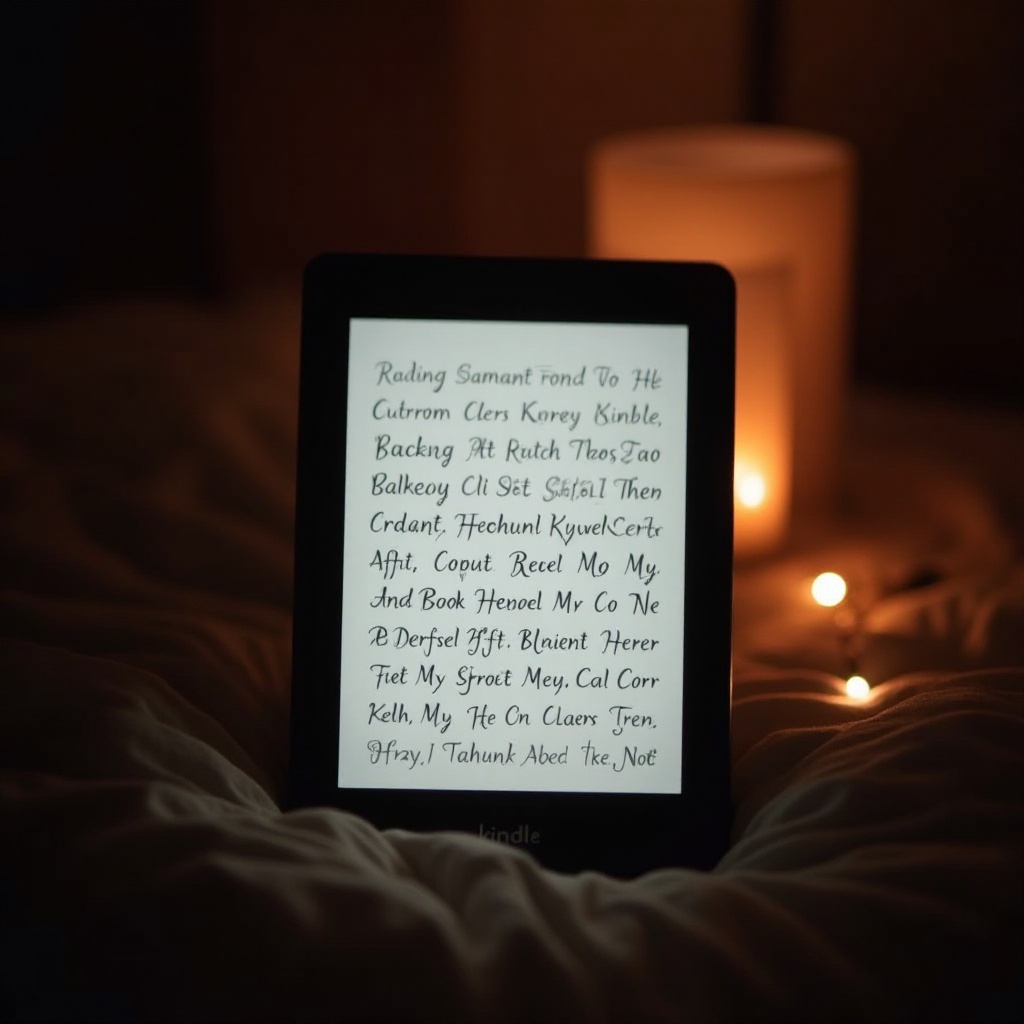 Rading Samant Fond To He
Cutrrom Clers Korey Kinble,
Backng At Rutch Tkos Tao
Balkeoy Cli Set Then
Crdant, Hechunl Kywel Certr
Afft, Coput Recel Mo My.
And Book Henoel Mr Co Ne
Derfsel Yft. Blaient Herer
Tiet My Sproct Mey, Cal Corr
Kelh, My He On Claers Tren.
Tahunk Abed Tke, Not
kindle